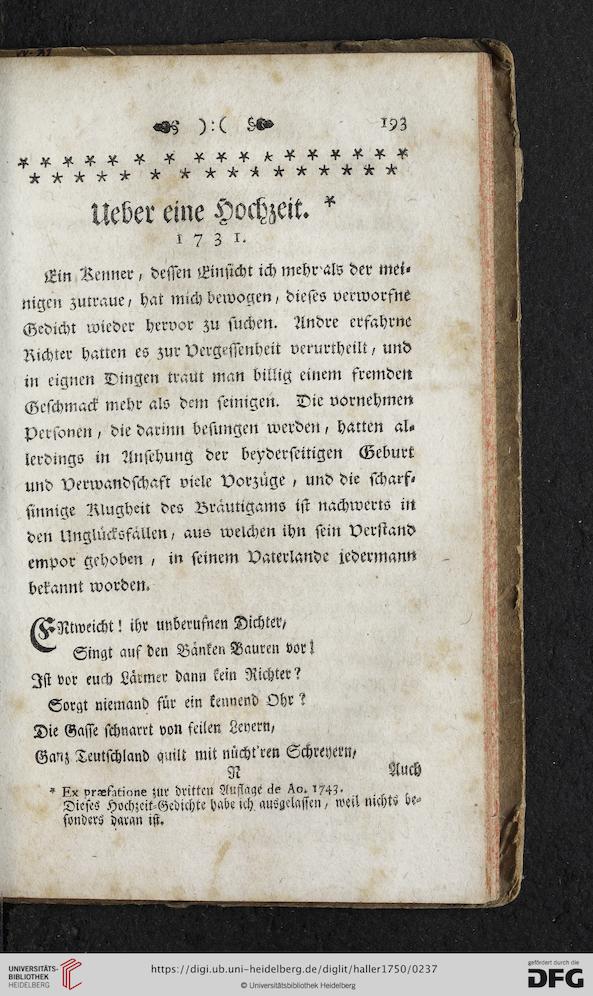 ):( 193
Ueber eine Hochzeit. *
1731.
Ein Kenner, dessen Einsicht ich mehr als der mei-
nigen zutraue, hat mich bewogen, dieses verworfne
Gedicht wieder hervor zu suchen. Andre erfahrne
Richter hatten es zur Vergessenheit verurtheilt, und
in eignen Dingen traut man billig einem fremden
Geschmack mehr als dem seinigen. Die vornehmen
Personen, die darinn besungen werden, hatten al-
lerdings in Ansehung der beyderseitigen Geburt
und Verwandschaft viele Vorzüge, und die scharf-
sinnige Klugheit des Bräutigams ist nachwerts in
den Unglücksfällen, aus welchen ihn sein Verstand
empor gehoben, in seinem Vaterlande jedermann
bekannt worden.
ENtweicht! ihr unberufnen Dichter,
Singt auf den Bänken Bauren vor!
Ist vor euch Lärmer dann kein Richter?
Sorgt niemand für ein kennend Ohr?
Die Gasse schnarrt von feilen Leyern,
Ganz Teutschland quillt mit nücht'ren Schreyern,
N Auch
* Ex præfatione zur dritten Auflage de Ao. 1743.
Dieses Hochzeit-Gedichte habe ich ausgelassen, weil nichts be-
sonders daran ist.
UNIVERSITÄTS-
BIBLIOTHEK
HEIDELBERG
https://digi.ub.uni-heidelberg.de/diglit/haller1750/0237
© Universitätsbibliothek Heidelberg
gefördert durch die
DFG